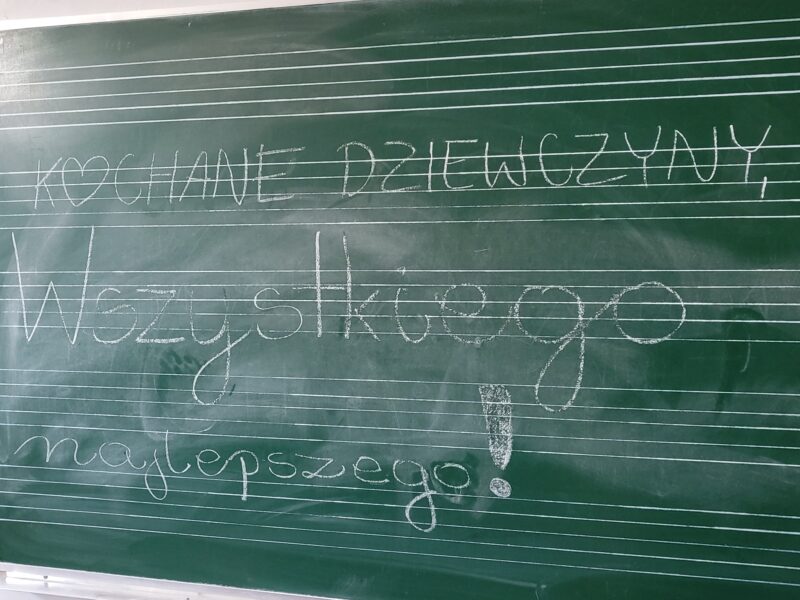 KOCHANE DZIEWCZYNY,
Wszystkiego
najlepszego!